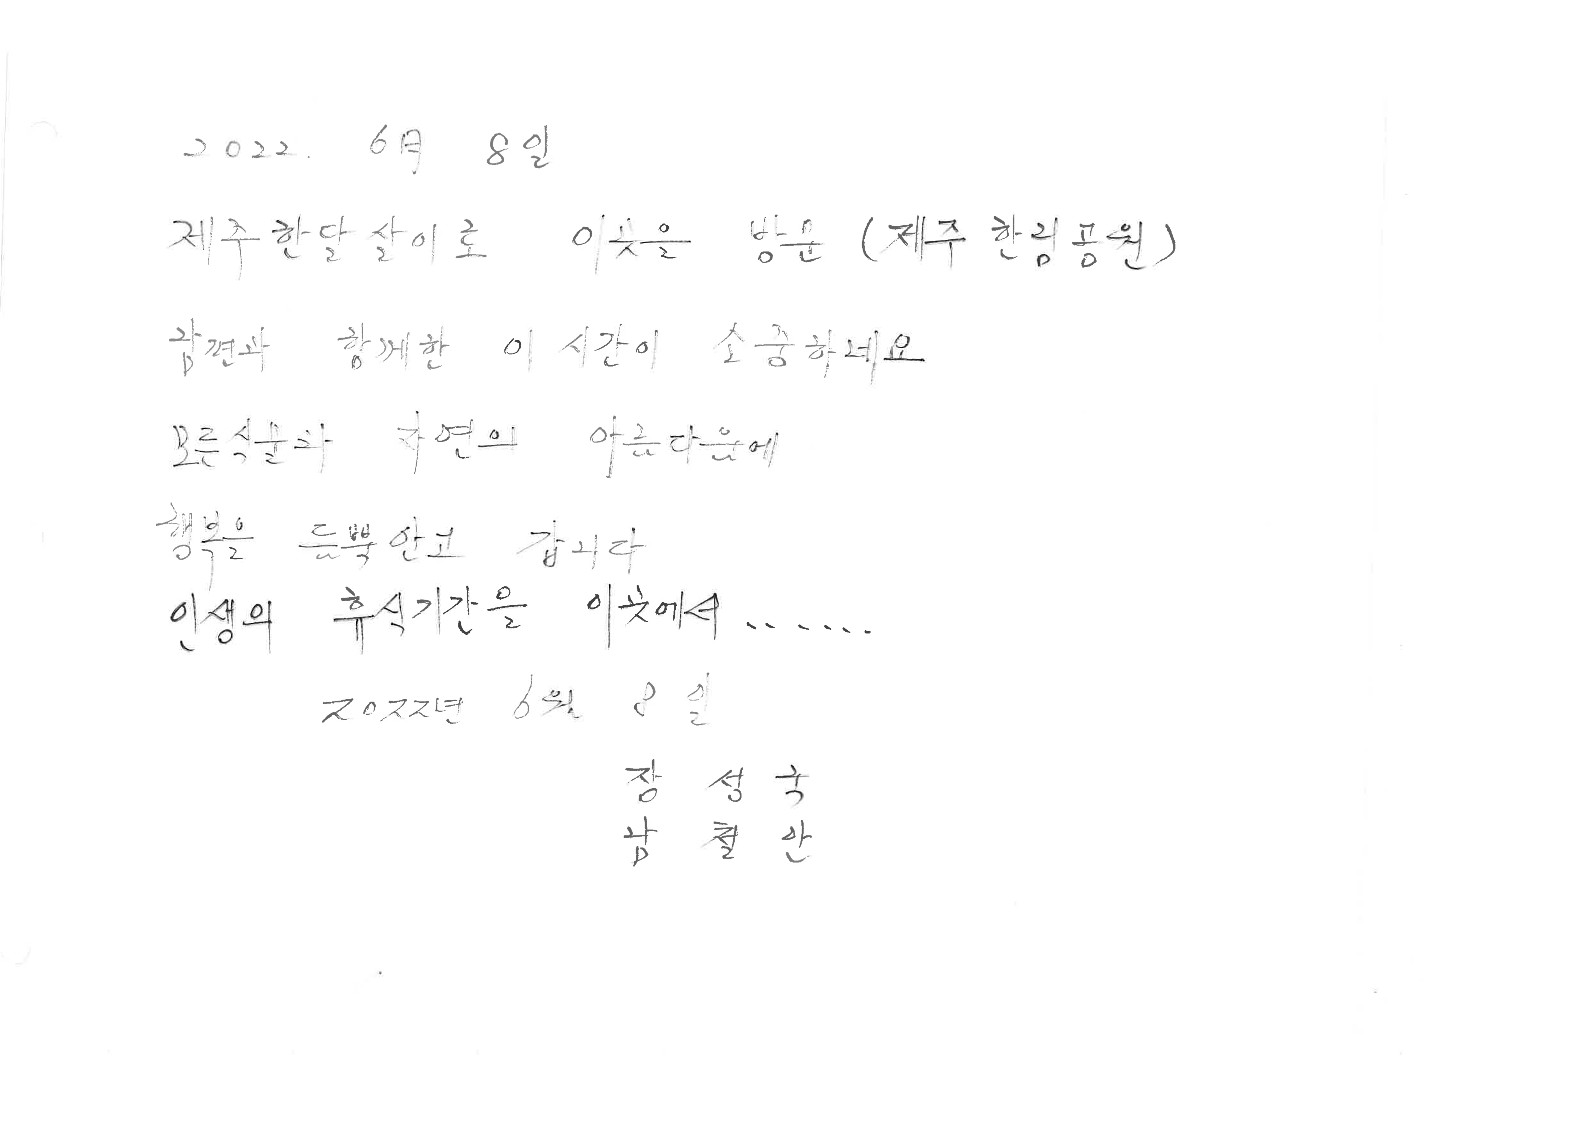 2022. 6月 8일
제주한달살이로 이곳을 방문 (제주 한림공원)
남편과 함께한 이 시간이 소중하네요
모든식물과 자연의 아름다움에
행복을 듬뿍안고 갑니다
인생의 휴식기간을 이곳에서.......
2022년 6월 8일
장 성 국
남 철 안